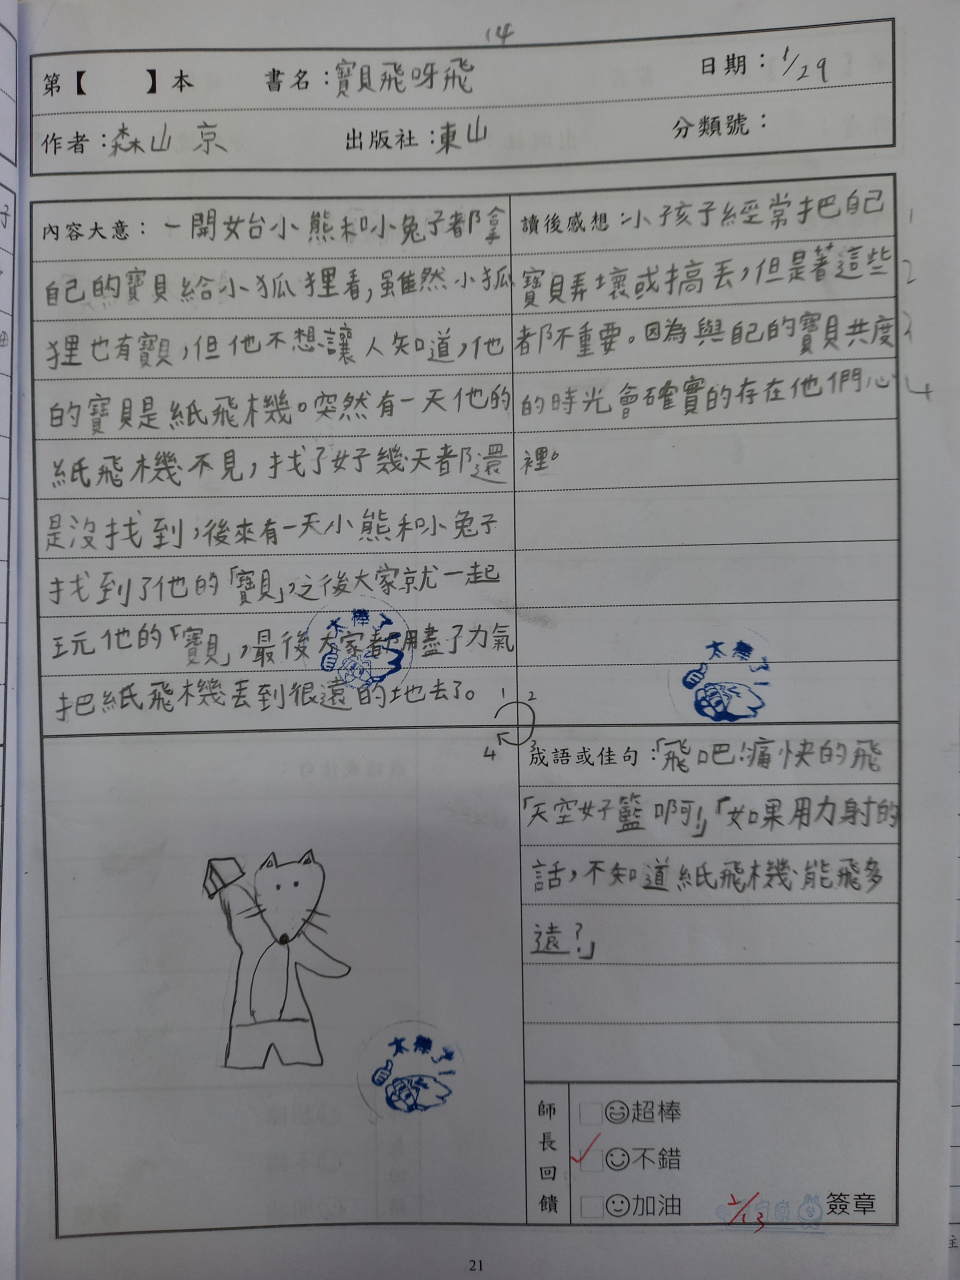 14
第【 】本 書名：寶貝飛呀飛 日期：1/29
作者：森山 京 出版社：東山 分類號：
內容大意：一開始小熊和小兔子都拿
自己的寶貝給小狐狸看，雖然小狐
狸也有寶貝，但他不想讓人知道，他
的寶貝是紙飛機。突然有一天他的
紙飛機不見，找了好幾天都還
是沒找到，後來有一天小熊和小兔子
找到了他的「寶貝」，之後大家就一起
玩他的「寶貝」，最後大家都用盡了力氣
把紙飛機丟到很遠的地去了。
讀後感想：小孩子經常把自己
寶貝弄壞或搞丟，但是著這些
都不重要。因為與自己的寶貝共度
的時光會確實的存在他們心
裡。
1
2
3
4
太棒了
太棒了
1 2
4 3
成語或佳句：「飛吧！痛快的飛
「天空好籃啊！」「如果用力射的
話，不知道紙飛機能飛多
遠？」
太棒了
師長回饋
超棒
不錯
加油
2/13
簽章
21